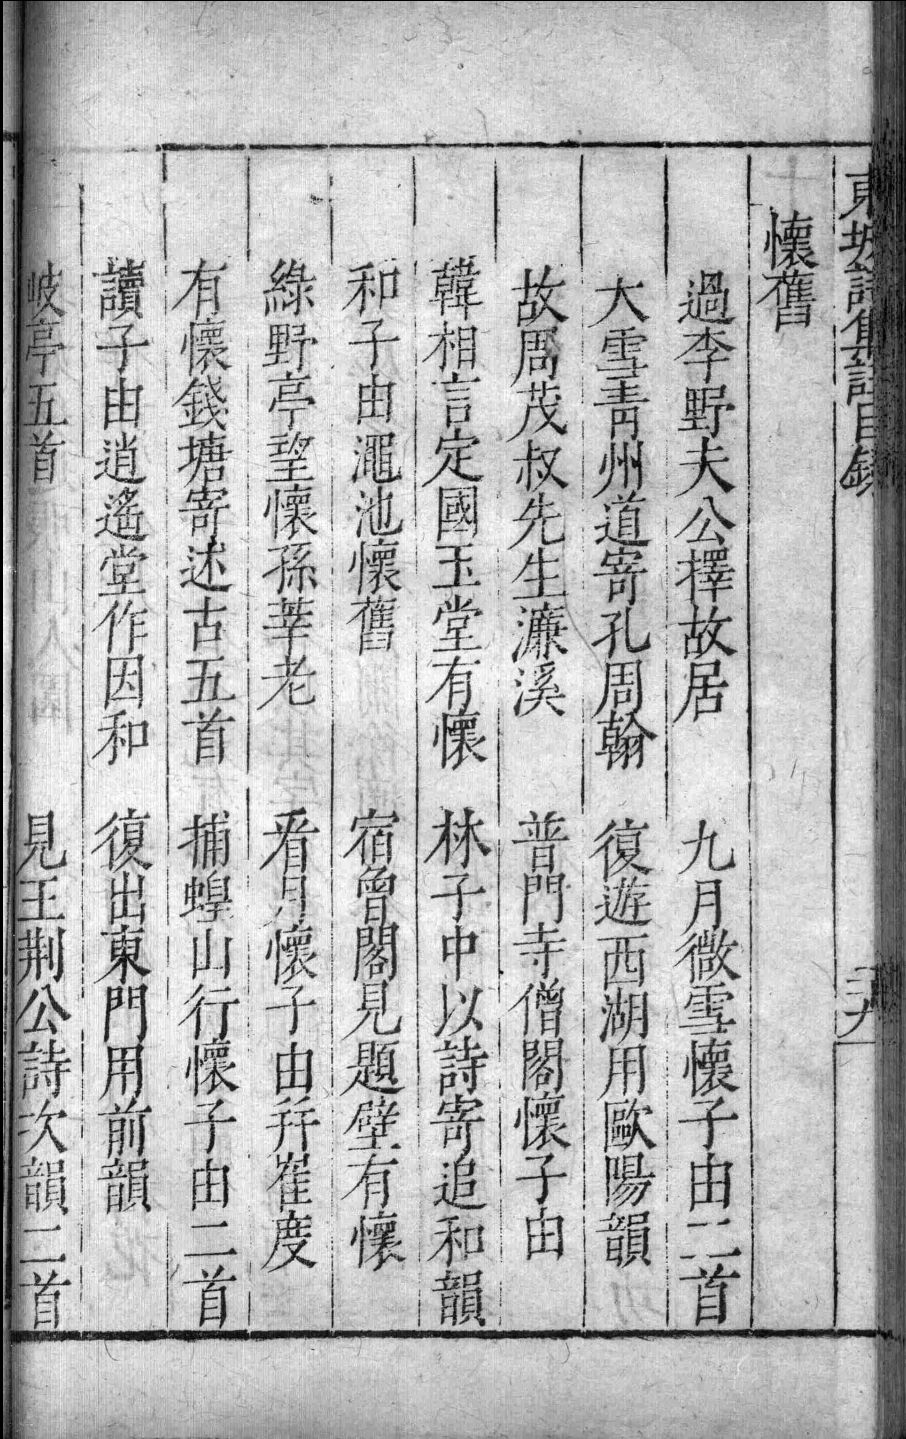 東坡詩集註目錄
懷舊
過李野夫公擇故居 九月微雪懷子由二首
大雪青州道寄孔周翰 復遊西湖用歐陽韻
故周茂叔先生濂溪 普門寺僧閣懷子由
韓相言定國玉堂有懷 林子中以詩寄追和韻
和子由澠池懷舊 宿曾閣見題壁有懷
綠野亭望懷孫莘老 看月懷子由幷崔度
有懷錢塘寄述古五首 捕蝗山行懷子由二首
讀子由逍遙堂作因和 復出東門用前韻
岐亭五首 見王荆公詩次韻二首